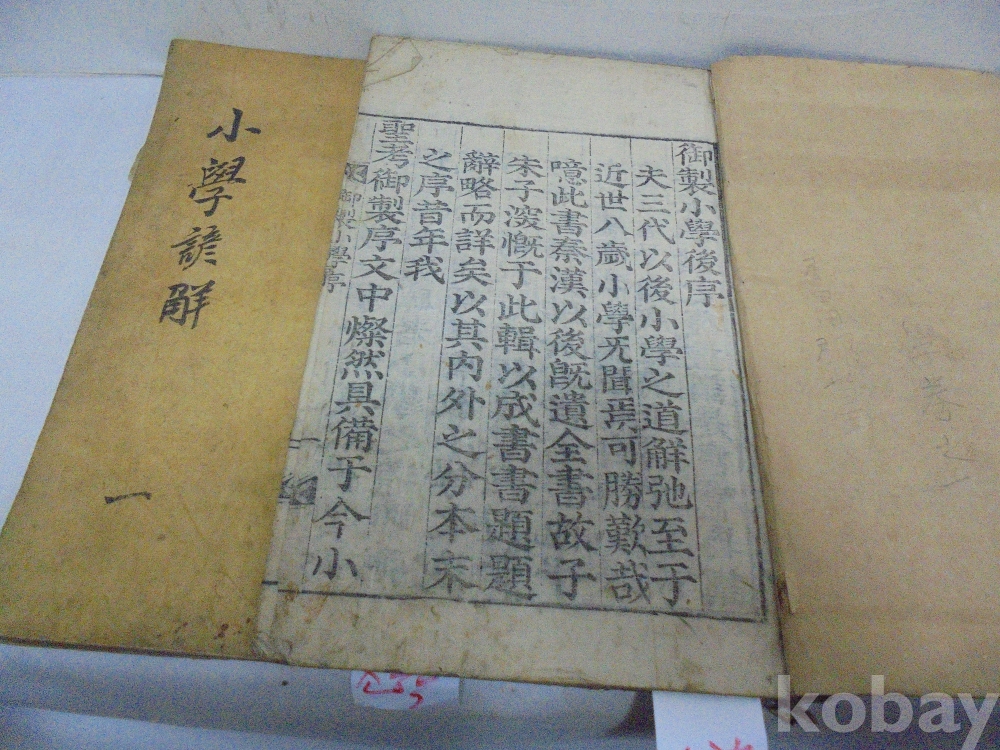 小學諺解
一
御製小學後序
夫三代以後小學之道解弛至于
近世八歲小學旡聞焉可勝歎哉
噫此書秦漢以後旣遺全書故子
朱子深慨于此輯以成書書題題
辭略而詳矣以其內外之分本末
之序昔年我
聖考御製序文中燦然具備于今小
御製小學序
學
kobay